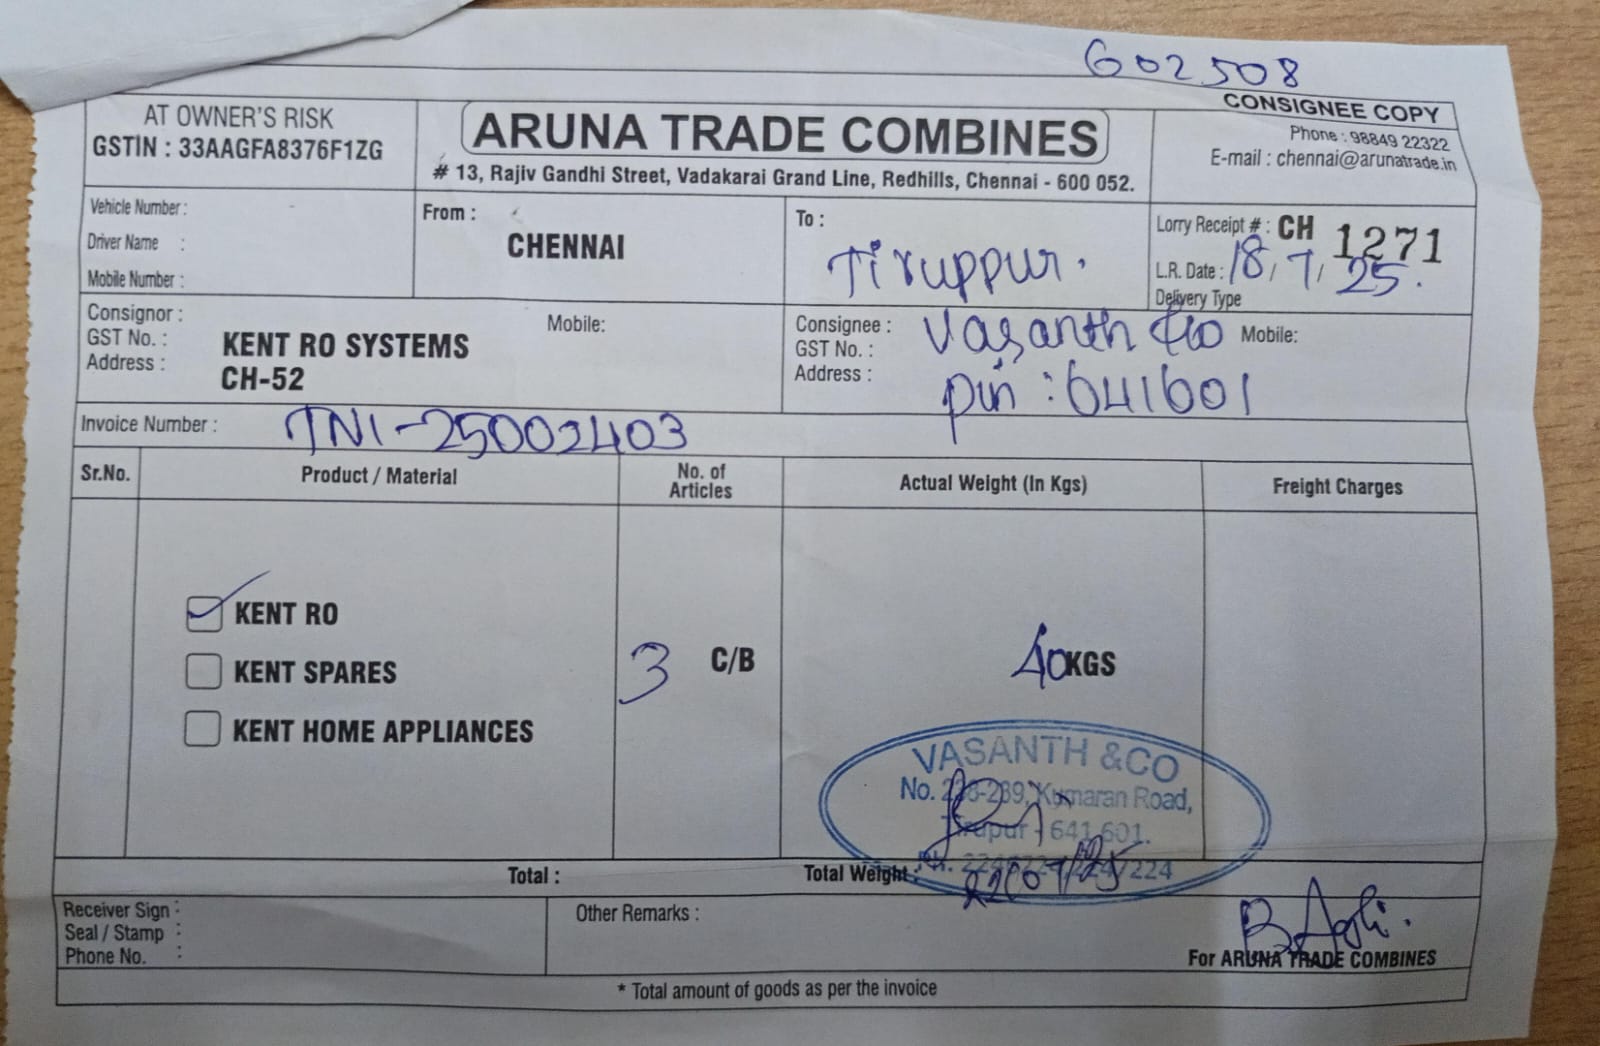 602508
CONSIGNEE COPY
AT OWNER'S RISK
GSTIN : 33AAGFA8376F1ZG
ARUNA TRADE COMBINES
# 13, Rajiv Gandhi Street, Vadakarai Grand Line, Redhills, Chennai - 600 052.
Phone : 98849 22322
E-mail : chennai@arunatrade.in
Vehicle Number :
Driver Name :
Mobile Number :
From :
CHENNAI
To :
Tiruppur.
Lorry Receipt # : CH 1271
L.R. Date : 18/7/25.
Delivery Type
Consignor :
GST No. :
Address :
Mobile:
KENT RO SYSTEMS
CH-52
Consignee : Vasanth &co Mobile:
GST No. :
Address : pin : 641601
Invoice Number : TN1-25002403
Sr.No. Product / Material No. of Articles Actual Weight (In Kgs) Freight Charges
KENT RO
KENT SPARES
KENT HOME APPLIANCES
3 C/B
40 KGS
VASANTH &CO
No. 238-239, Kumaran Road,
Tirupur - 641 601.
22/07/25
Total :
Total Weight :
Receiver Sign :
Seal / Stamp :
Phone No. :
Other Remarks :
For ARUNA TRADE COMBINES
* Total amount of goods as per the invoice